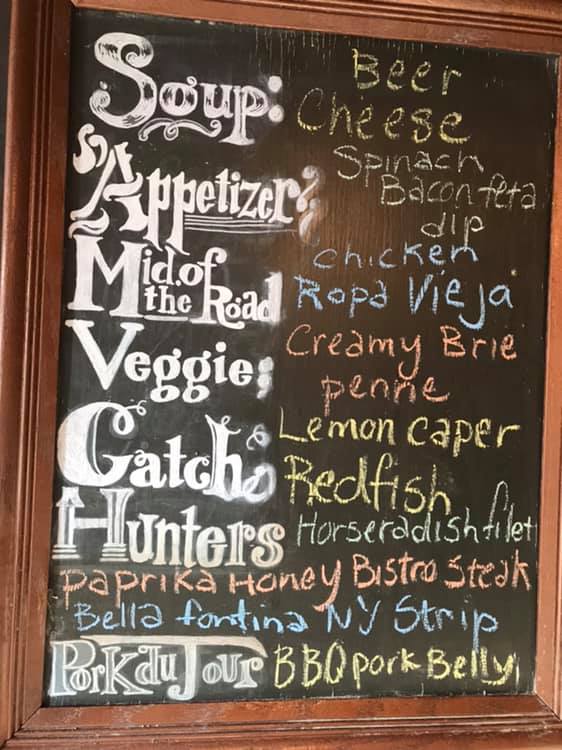 Soup: Beer
Cheese
Appetizer: Spinach
Bacon feta
dip
Mid. of the Road chicken
Ropa Vieja
Veggie: Creamy Brie
penne
Catch: Lemon caper
Redfish
Hunters Horseradish filet
paprika Honey Bistro Steak
Bella fontina NY Strip
Pork du Jour BBQ pork Belly